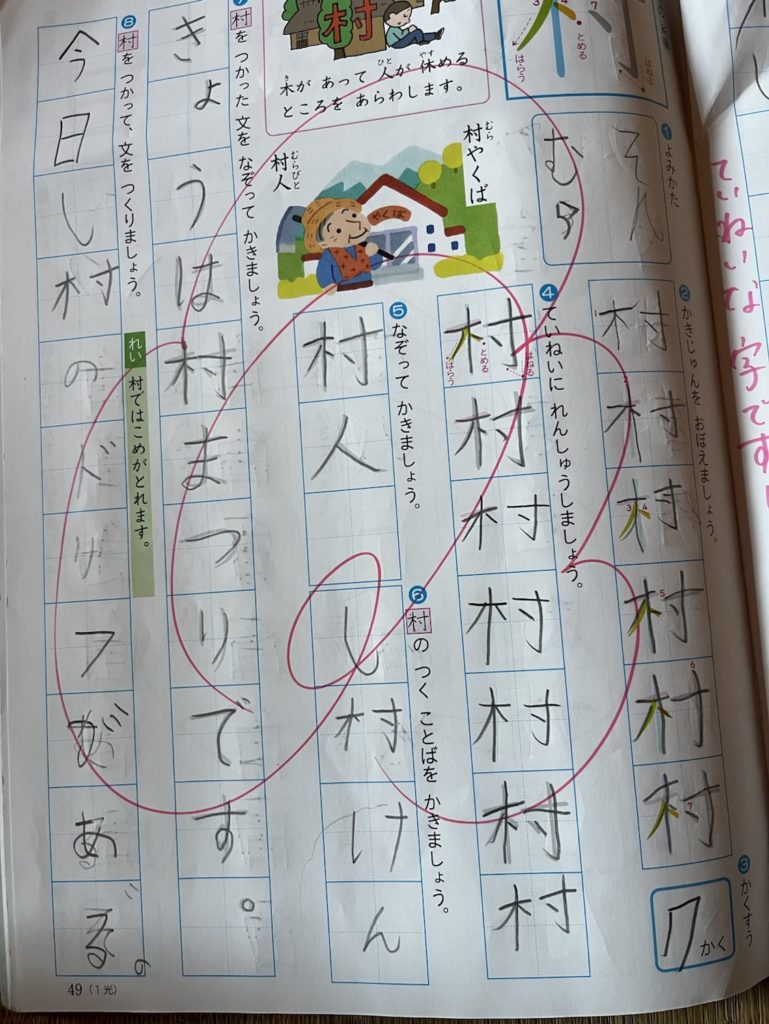 ていねいな字です!
① よみかた
そん
むら
② かきじゅんを おぼえましょう。
村村村村村村
③ かくすう
7かく
とめる
はらう
はねる
④ ていねいに れんしゅうしましょう。
村村村村村村村
とめる
はらう
はねる
木が あって 人が 休める
ところを あらわします。
村やくば
村人
やくば
⑤ なぞって かきましょう。
村人
⑥ 村の つく ことばを かきましょう。
し村けん
村を つかった 文を なぞって かきましょう。
きょうは村まつりです。
⑧ 村を つかって、文を つくりましょう。
れい 村ではこめがとれます。
今日し村のドリフがある。
49(1光)